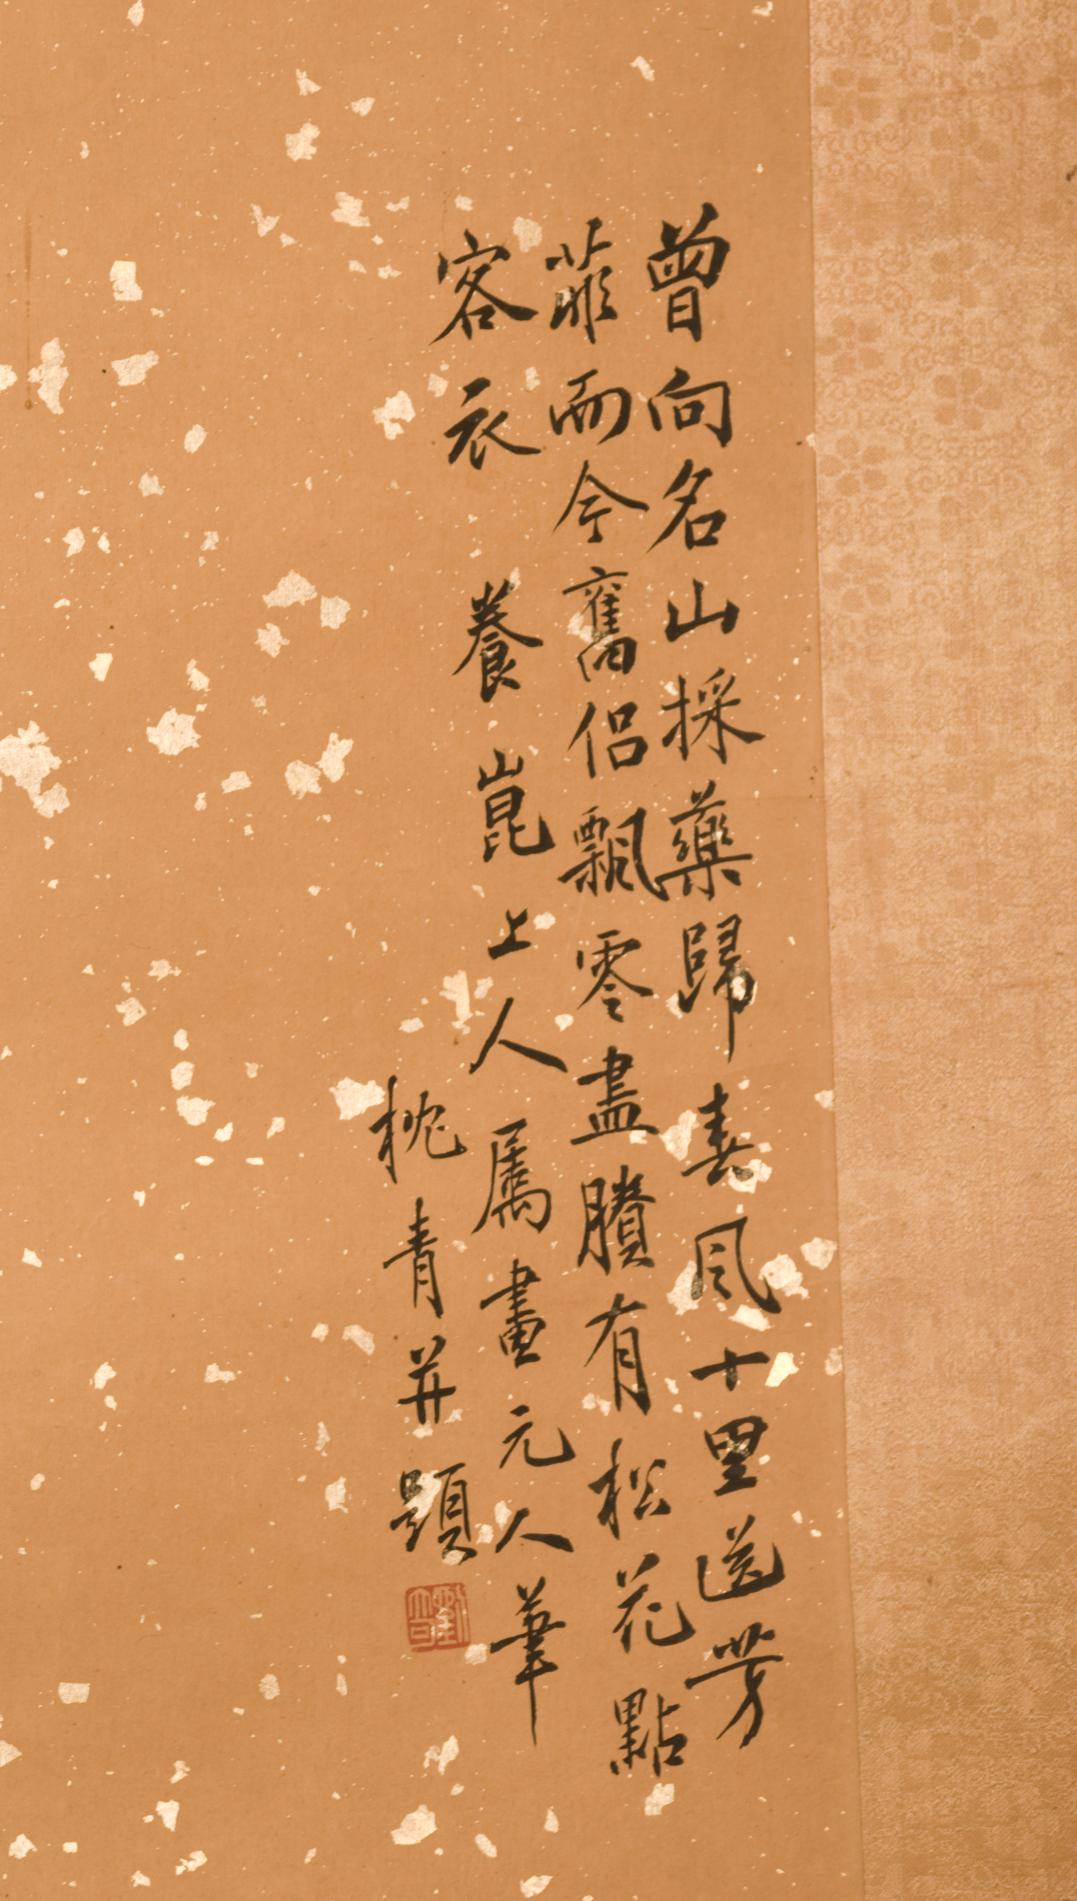 曾向名山採藥歸春風十里送芳
菲而今舊侣飄零盡賸有松花點
客衣 養崑上人屬畫元人筆
枕青并題
劉奇